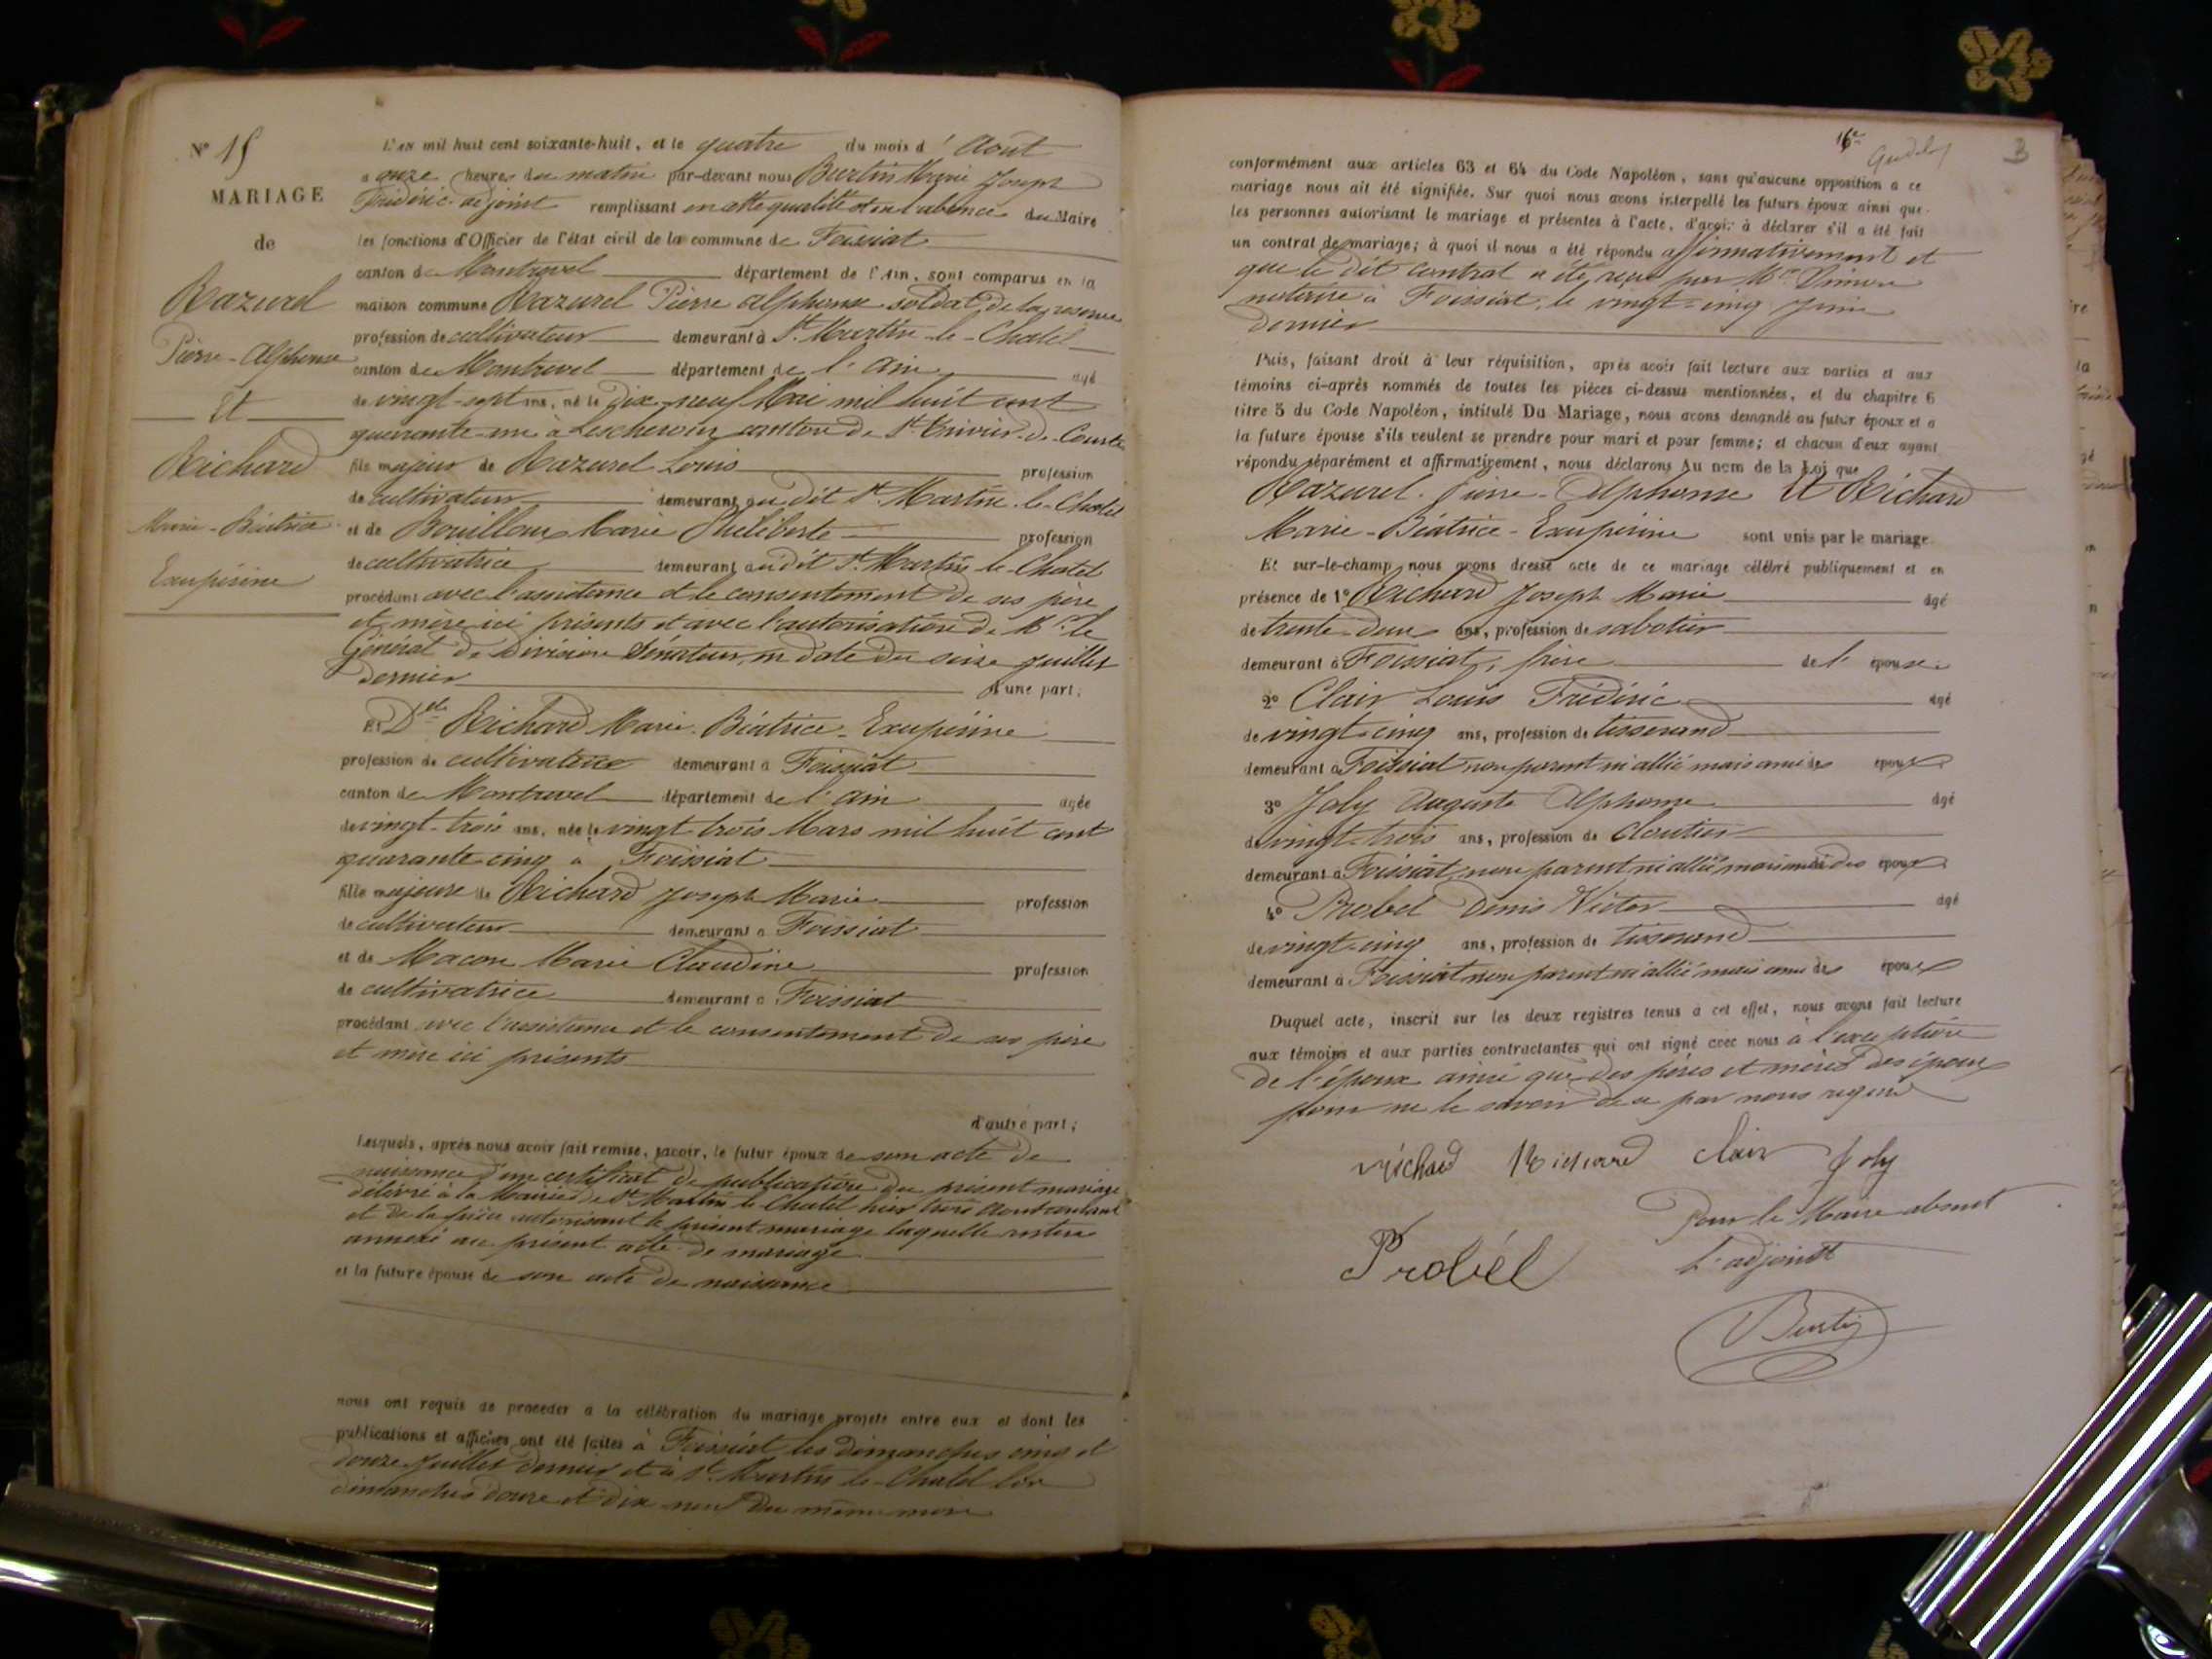 N° 15
MARIAGE
de
Razurel
Pierre-Alphonse
Et
Richard
Marie-Béatrice
Exupérine
L'an mil huit cent soixante-huit, et le quatre du mois d'Aout
a onze heures du matin par-devant nous Burtin Marie Joseph
Frédéric adjoint remplissant en cette qualité et en l'absence du Maire
les fonctions d'Officier de l'état civil de la commune de Foissiat
canton de Montrevel département de l'Ain, sont comparus en la
maison commune Razurel Pierre Alphonse soldat de la réserve
profession de cultivateur demeurant à St Martin-le-Chatel
canton de Montrevel département de l'Ain agé
de vingt-sept ans, né le dix-neuf Mai mil huit cent
quarante-un à Lescheroux canton de St Trivier-de-Courtes
fils majeur de Razurel Louis profession
de cultivateur demeurant au dit St Martin-le-Chatel
et de Bouilloux Marie Philiberte profession
de cultivatrice demeurant audit St Martin-le-Chatel
procédant avec l'assistance et le consentement de ses père
et mère ici présents et avec l'autorisation de Mr le
Général de Division Sénateur, en date du seize Juillet
dernier d'une part;
Et Delle Richard Marie-Béatrice-Exupérine
profession de cultivatrice demeurant à Foissiat
canton de Montrevel département de l'Ain agée
de vingt-trois ans, née le vingt trois Mars mil huit cent
quarante-cinq à Foissiat
fille majeure de Richard Joseph Marie profession
de cultivateur demeurant à Foissiat
et de Macon Marie Claudine profession
de cultivatrice demeurant à Foissiat
procédant avec l'assistance et le consentement de ses père
et mère ici présents
d'autre part;
Lesquels, après nous avoir fait remise, savoir, le futur époux de son acte de
naissance d'un certificat de publication du présent mariage
délivré à la Mairie de St Martin le-Chatel hier trois Aout courant
et de la pièce autorisant le présent mariage laquelle restera
annexé au présent acte de mariage
et la future épouse de son acte de naissance
nous ont requis de proceder a la célébration du mariage projeté entre eux et dont les
publications et affiches ont été faites à Foissiat les dimanches cinq et
douze Juillet dernier et à St Martin le-Chatel les
dimanches douze et dix neuf du même mois
16e
3
conformément aux articles 63 et 64 du Code Napoléon, sans qu'aucune opposition a ce
mariage nous ait été signifiée. Sur quoi nous avons interpellé les futurs époux ainsi que
les personnes autorisant le mariage et présentes à l'acte, d'avoir à déclarer s'il a été fait
un contrat de mariage; à quoi il nous a été répondu affirmativement et
que le dit contrat a été reçu par Me
notaire à Foissiat, le vingt-cinq Juin
dernier
Puis, faisant droit à leur réquisition, après avoir fait lecture aux parties et aux
témoins ci-après nommés de toutes les pièces ci-dessus mentionnées, et du chapitre 6
titre 5 du Code Napoléon, intitulé Du Mariage, nous avons demandé au futur époux et a
la future épouse s'ils veulent se prendre pour mari et pour femme; et chacun d'eux ayant
répondu séparément et affirmativement, nous déclarons Au nom de la Loi que
Razurel-Pierre-Alphonse Et Richard
Marie-Béatrice-Exupérine sont unis par le mariage.
Et sur-le-champ nous avons dressé acte de ce mariage célébré publiquement et en
présence de 1° Richard Joseph Marie agé
de trente-deux ans, profession de sabotier
demeurant à Foissiat, frère de l'épouse
2° Clair Louis Frédéric agé
de vingt-cinq ans, profession de tisserand
demeurant à Foissiat non parent ni allié mais ami des époux
3° Joly Auguste Alphonse agé
de vingt-trois ans, profession de Cloutier
demeurant à Foissiat, non parent ni allié mais ami des époux
4° Probel Denis Victor agé
de vingt-cinq ans, profession de tisserand
demeurant à Foissiat non parent ni allié mais ami des époux
Duquel acte, inscrit sur les deux registres tenus à cet effet, nous avons fait lecture
aux témoins et aux parties contractantes qui ont signé avec nous à l'exception
de l'époux ainsi que des pères et mères des époux
pour ne le savoir de ce par nous requis
richard Richard clair Joly
Probél
Pour le Maire absent
L'adjoint
Burtin